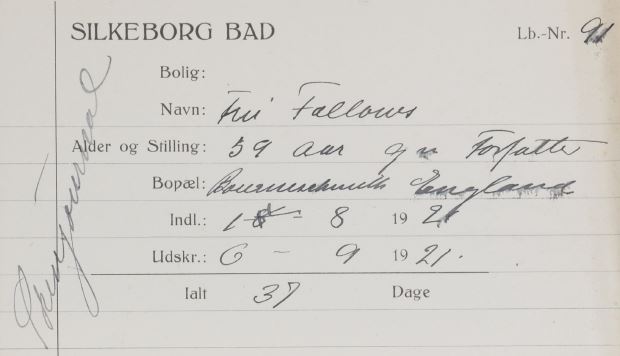 SILKEBORG BAD
Lb.-Nr. 91
Bolig:
Navn: Fru Fallows
Alder og Stilling: 59 Aar g n Forfatter
Bopæl: Bournemouth England
Indl.: 1 - 8 1921
Udskr.: 6 - 9 1921.
Ialt 37 Dage